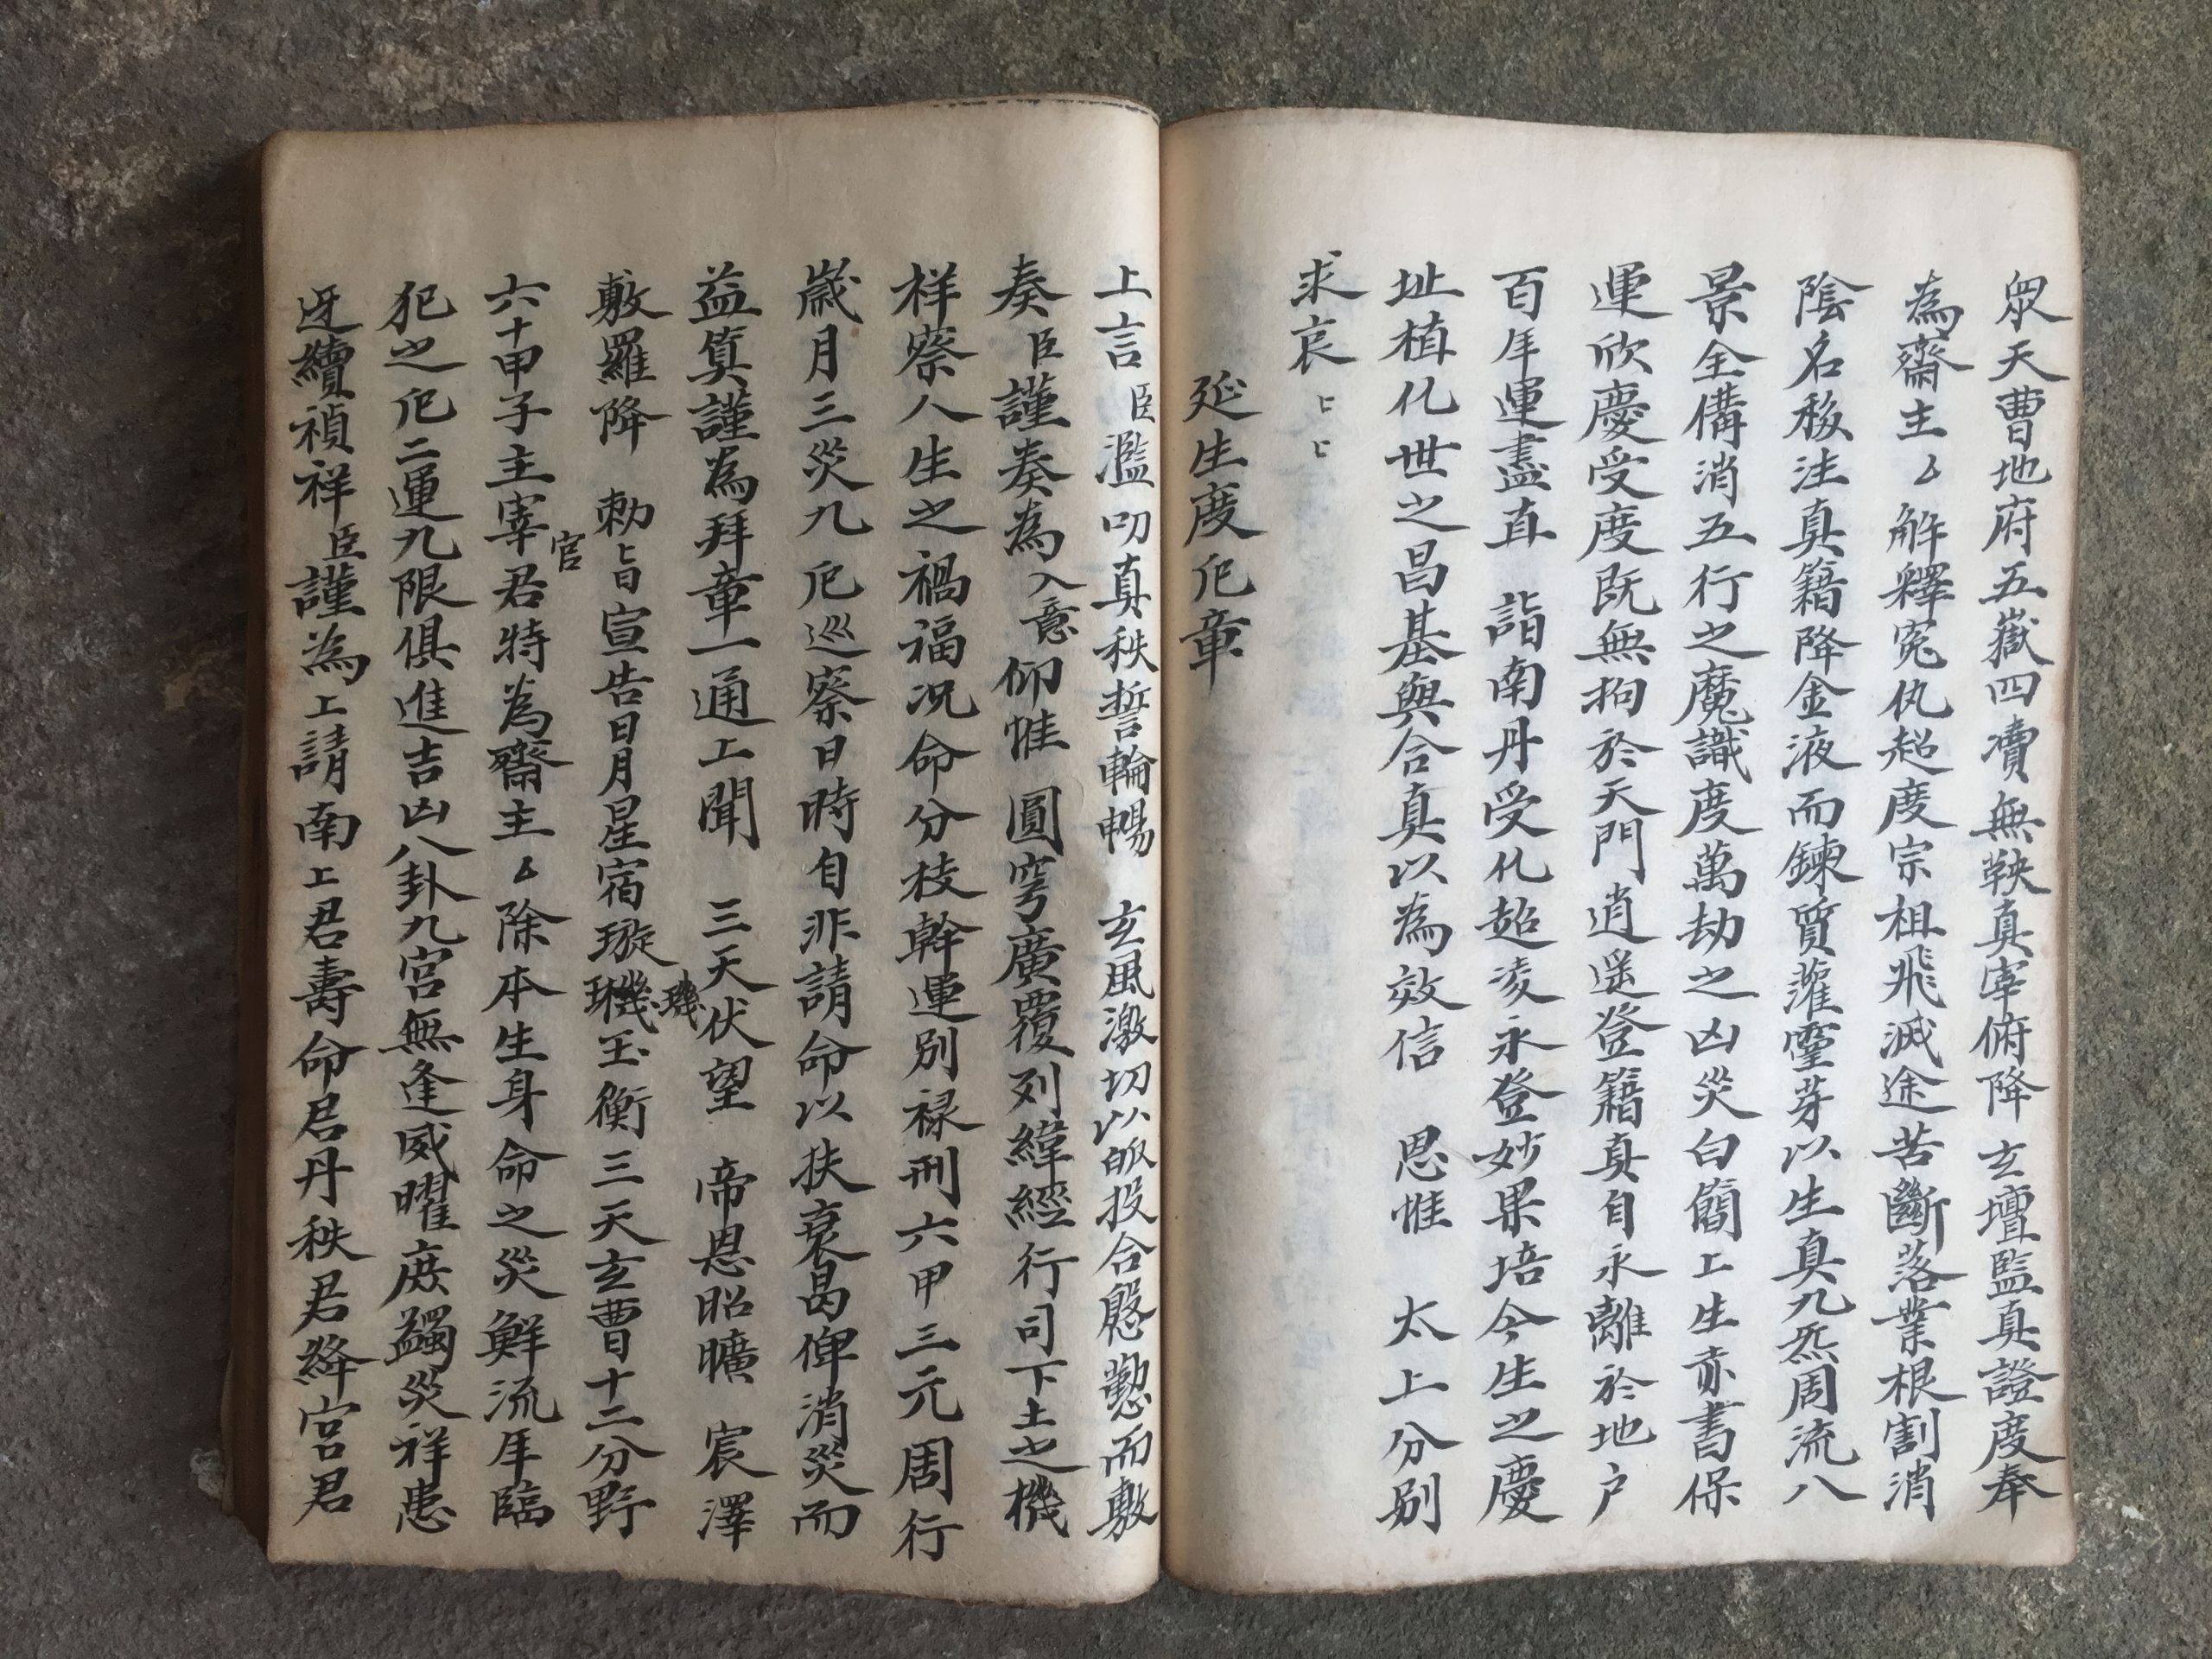 眾天曹地府五嶽四瀆無鞅真宰俯降 玄壇監真證度奉
為齋主厶解釋冤仇超度宗祖飛滅途苦斷落業根割消
陰名移注真籍降金液而鍊質灌靈芽以生真九炁周流八
景全備消五行之魔識度萬劫之凶災白簡上生赤書保
運欣慶受度既無拘於天門逍遥登籍真自永離於地户
百年運盡直 詣南丹受化超凌永登妙果培今生之慶
址植化世之昌基與合真以為效信 恩惟 太上分别
求哀 上上
延生度厄章
上言臣濫叨真秩誓輪暢 玄風激切以皈投合慇懃而敷
奏臣謹奏為入意仰惟 圓穹廣覆列緯經行司下土之機
祥察人生之禍福况命分枝幹運别禄刑六甲三元周行
歲月三災九厄巡察日時自非請命以扶衰曷俾消災而
益筭謹為拜章一通上聞 三天伏望 帝恩昭曠 宸澤
敷羅降 勅上旨宣告日月星宿璇璣玉衡三天玄曹十二分野
璣
官
六十甲子主宰君特為齋主厶除本生身命之災鮮流年臨
犯之厄二運九限俱進吉凶八卦九宮無逢威曜庶蠲災祥患
迓續禎祥臣謹為上請南上君壽命君丹秩君絳宮君